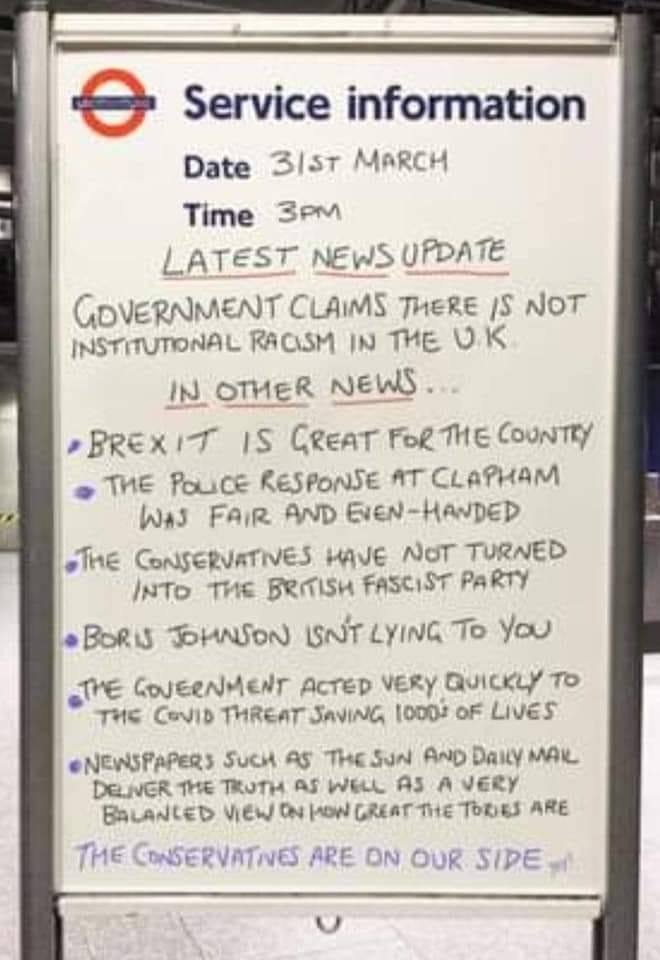 UNDERGROUND
Service information
Date 31ST MARCH
Time 3PM
LATEST NEWS UPDATE
GOVERNMENT CLAIMS THERE IS NOT
INSTITUTIONAL RACISM IN THE U.K.
IN OTHER NEWS...
• BREXIT IS GREAT FOR THE COUNTRY
• THE POLICE RESPONSE AT CLAPHAM
WAS FAIR AND EVEN-HANDED
• THE CONSERVATIVES HAVE NOT TURNED
INTO THE BRITISH FASCIST PARTY
• BORIS JOHNSON ISN'T LYING TO YOU
• THE GOVERNMENT ACTED VERY QUICKLY TO
THE COVID THREAT SAVING 1000'S OF LIVES
• NEWSPAPERS SUCH AS THE SUN AND DAILY MAIL
DELIVER THE TRUTH AS WELL AS A VERY
BALANCED VIEW ON HOW GREAT THE TORIES ARE
THE CONSERVATIVES ARE ON OUR SIDE